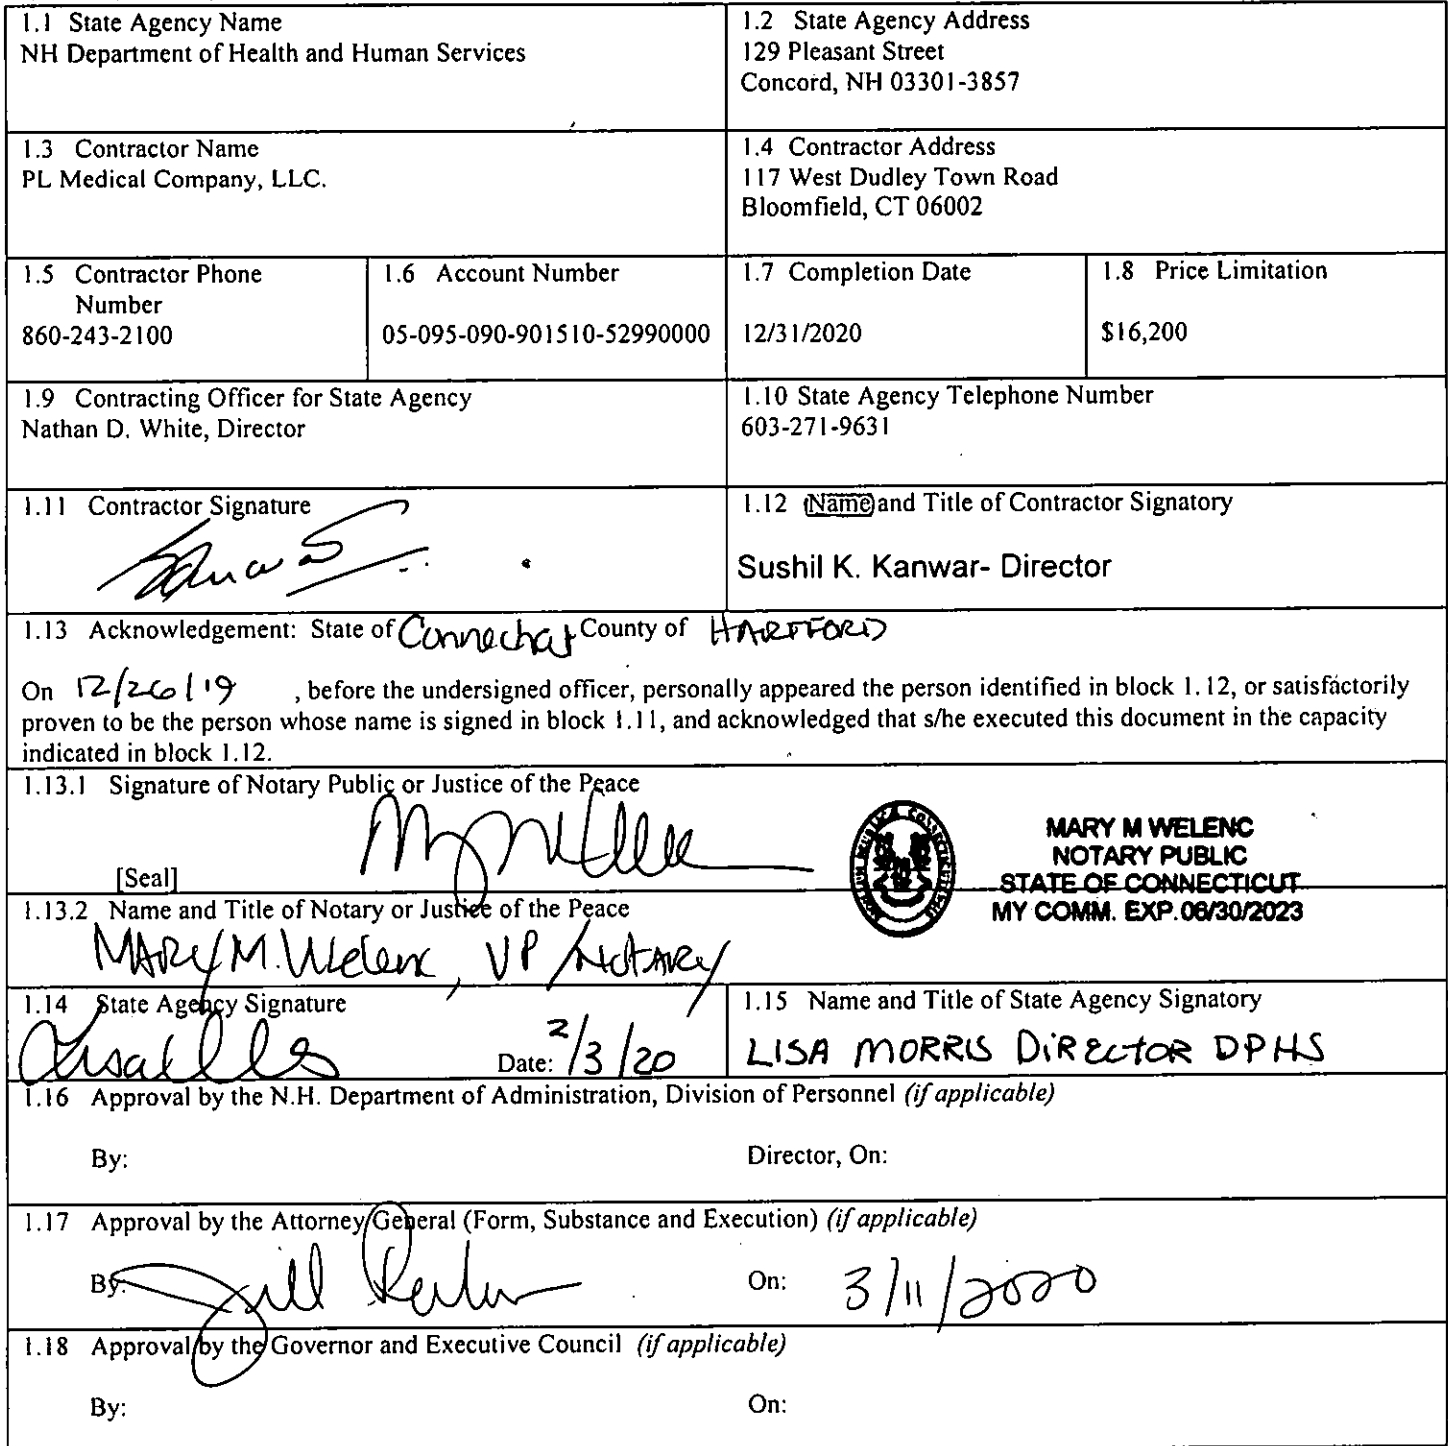 1.1 State Agency Name
NH Department of Health and Human Services
1.2 State Agency Address
129 Pleasant Street
Concord, NH 03301-3857
1.3 Contractor Name
PL Medical Company, LLC.
1.4 Contractor Address
117 West Dudley Town Road
Bloomfield, CT 06002
1.5 Contractor Phone
Number
860-243-2100
1.6 Account Number
05-095-090-901510-52990000
1.7 Completion Date
12/31/2020
1.8 Price Limitation
$16,200
1.9 Contracting Officer for State Agency
Nathan D. White, Director
1.10 State Agency Telephone Number
603-271-9631
1.11 Contractor Signature
1.12 Name and Title of Contractor Signatory
Sushil K. Kanwar- Director
1.13 Acknowledgement: State of Connecticut County of HARTFORD
On 12/26/19 , before the undersigned officer, personally appeared the person identified in block 1.12, or satisfactorily
proven to be the person whose name is signed in block 1.11, and acknowledged that s/he executed this document in the capacity
indicated in block 1.12.
1.13.1 Signature of Notary Public or Justice of the Peace
[Seal]
MARY M WELENC
NOTARY PUBLIC
STATE OF CONNECTICUT
MY COMM. EXP. 06/30/2023
1.13.2 Name and Title of Notary or Justice of the Peace
MARY M. Welenc, VP / NOTARY
1.14 State Agency Signature
Date: 2/3/20
1.15 Name and Title of State Agency Signatory
LISA MORRIS DIRECTOR DPHS
1.16 Approval by the N.H. Department of Administration, Division of Personnel (if applicable)
By:
Director, On:
1.17 Approval by the Attorney General (Form, Substance and Execution) (if applicable)
By: Jill
On: 3/11/2020
1.18 Approval by the Governor and Executive Council (if applicable)
By:
On: